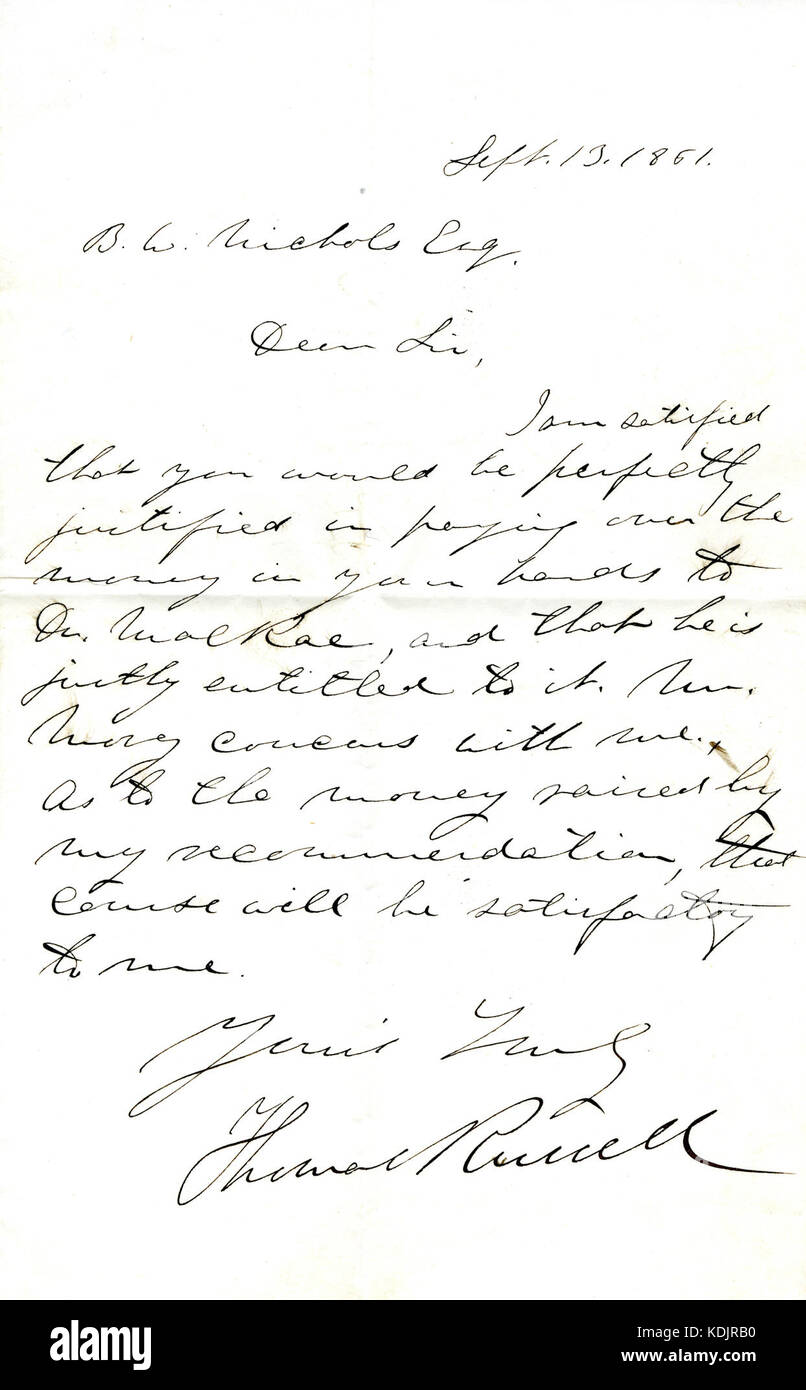 Sept. 13. 1861.
B. W. Nichols Esq.
Dear Sir,
I am satisfied
that you would be perfectly
justified in paying over the
money in your hands to
Dr. MacRae, and that he is
justly entitled to it. Mr.
Morey concurs with me.
As to the money raised by
my recommendation, that
course will be satisfactory
to me.
Yours Truly
Thomas Russell
alamy
a
alamy
Image ID: KDJRB0
www.alamy.com